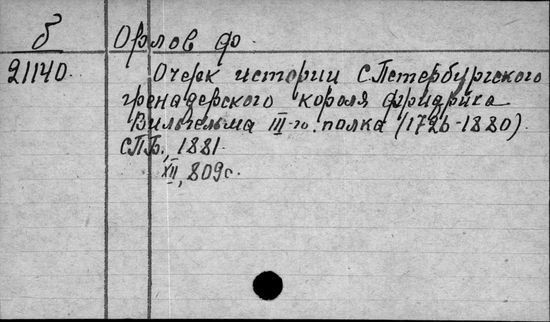 б Орлов Ф.
21140. Очерк истории С.Петербургского
гренадерского короля Фридриха
Вильгельма III-го. полка (1726-1880)
СПБ., 1881.
XII, 809с.